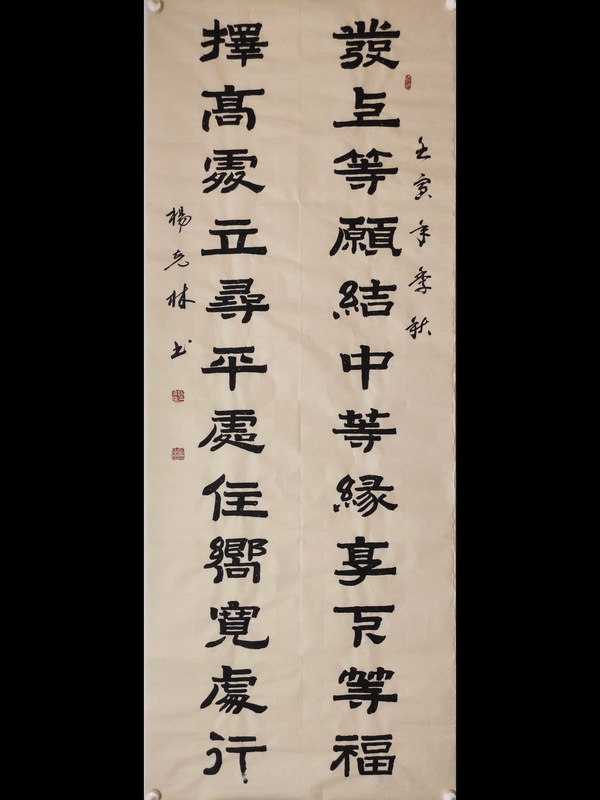 壬寅年季秋
發上等願結中等緣享下等福
擇髙處立尋平處住嚮寬處行
楊林书